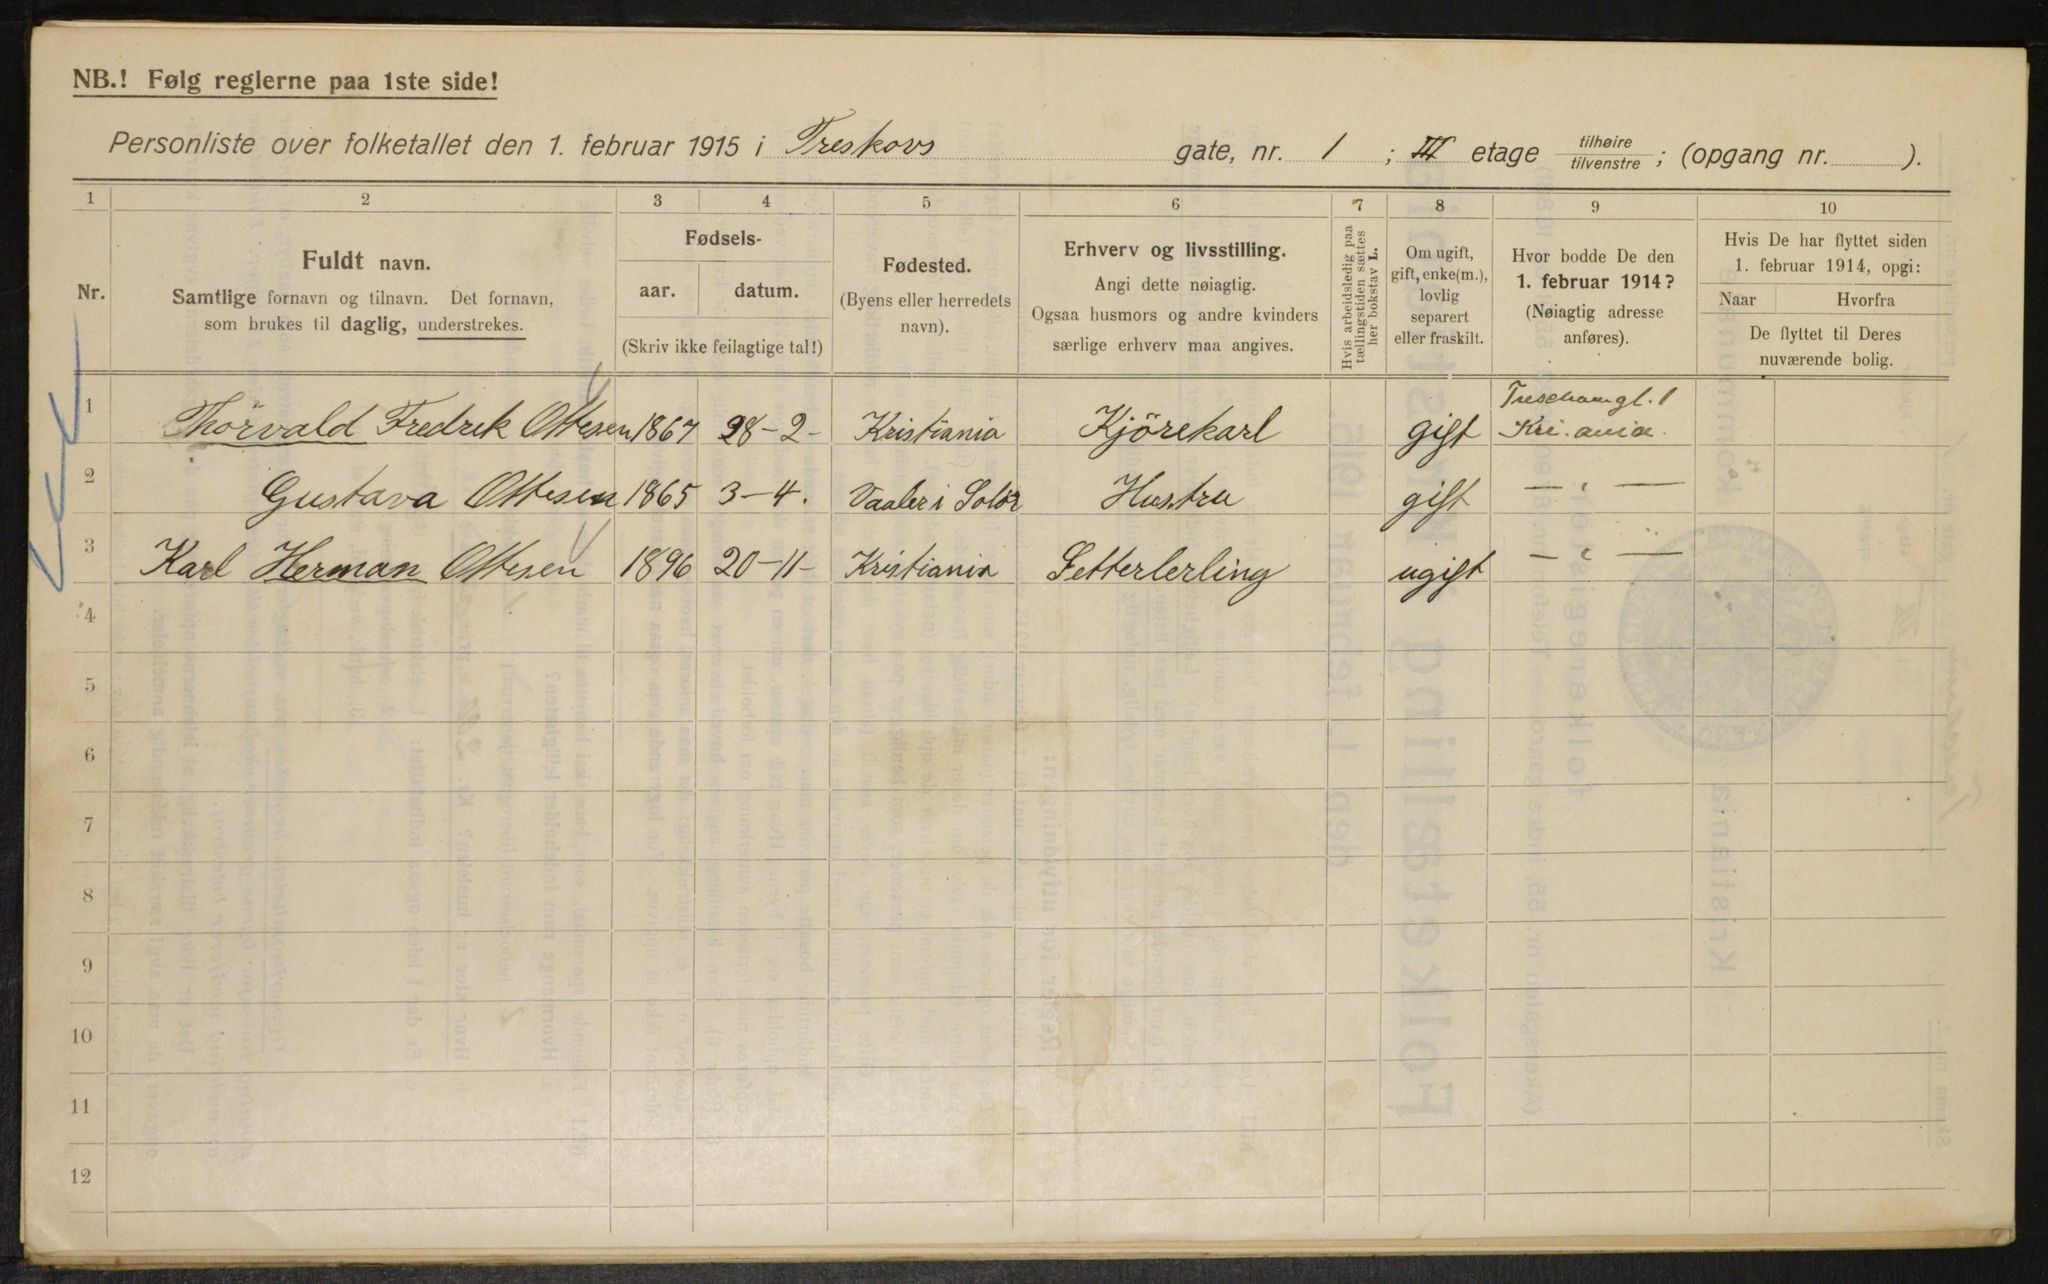 NB.! Følg reglerne paa 1ste side!
Personliste over folketallet den 1. februar 1915 i Treskovs gate, nr. 1 ; III etage tilhøire / tilvenstre ; (opgang nr. ).
1 2 3 4 5 6 7 8 9 10
Nr.
Fuldt navn.
Samtlige fornavn og tilnavn. Det fornavn,
som brukes til daglig, understrekes.
Fødsels-
aar. datum.
(Skriv ikke feilagtige tal!)
Fødested.
(Byens eller herredets
navn).
Erhverv og livsstilling.
Angi dette nøiagtig.
Ogsaa husmors og andre kvinders
særlige erhverv maa angives.
Hvis arbeidsledig paa
tællingstiden sættes
her bokstav L.
Om ugift,
gift, enke(m.),
lovlig
separert
eller fraskilt.
Hvor bodde De den
1. februar 1914?
(Nøiagtig adresse
anføres).
Hvis De har flyttet siden
1. februar 1914, opgi:
Naar Hvorfra
De flyttet til Deres
nuværende bolig.
1 Thorvald Fredrik Ottesen 1867 28-2- Kristiania Kjörekarl gift Kri.ania
2 Gustava Ottesen 1865 3-4. Vaaler i Solör Hustru gift — " —
3 Karl Herman Ottesen 1896 20-11- Kristiania Setterlerling ugift — " —
4
5
6
7
8
9
10
11
12